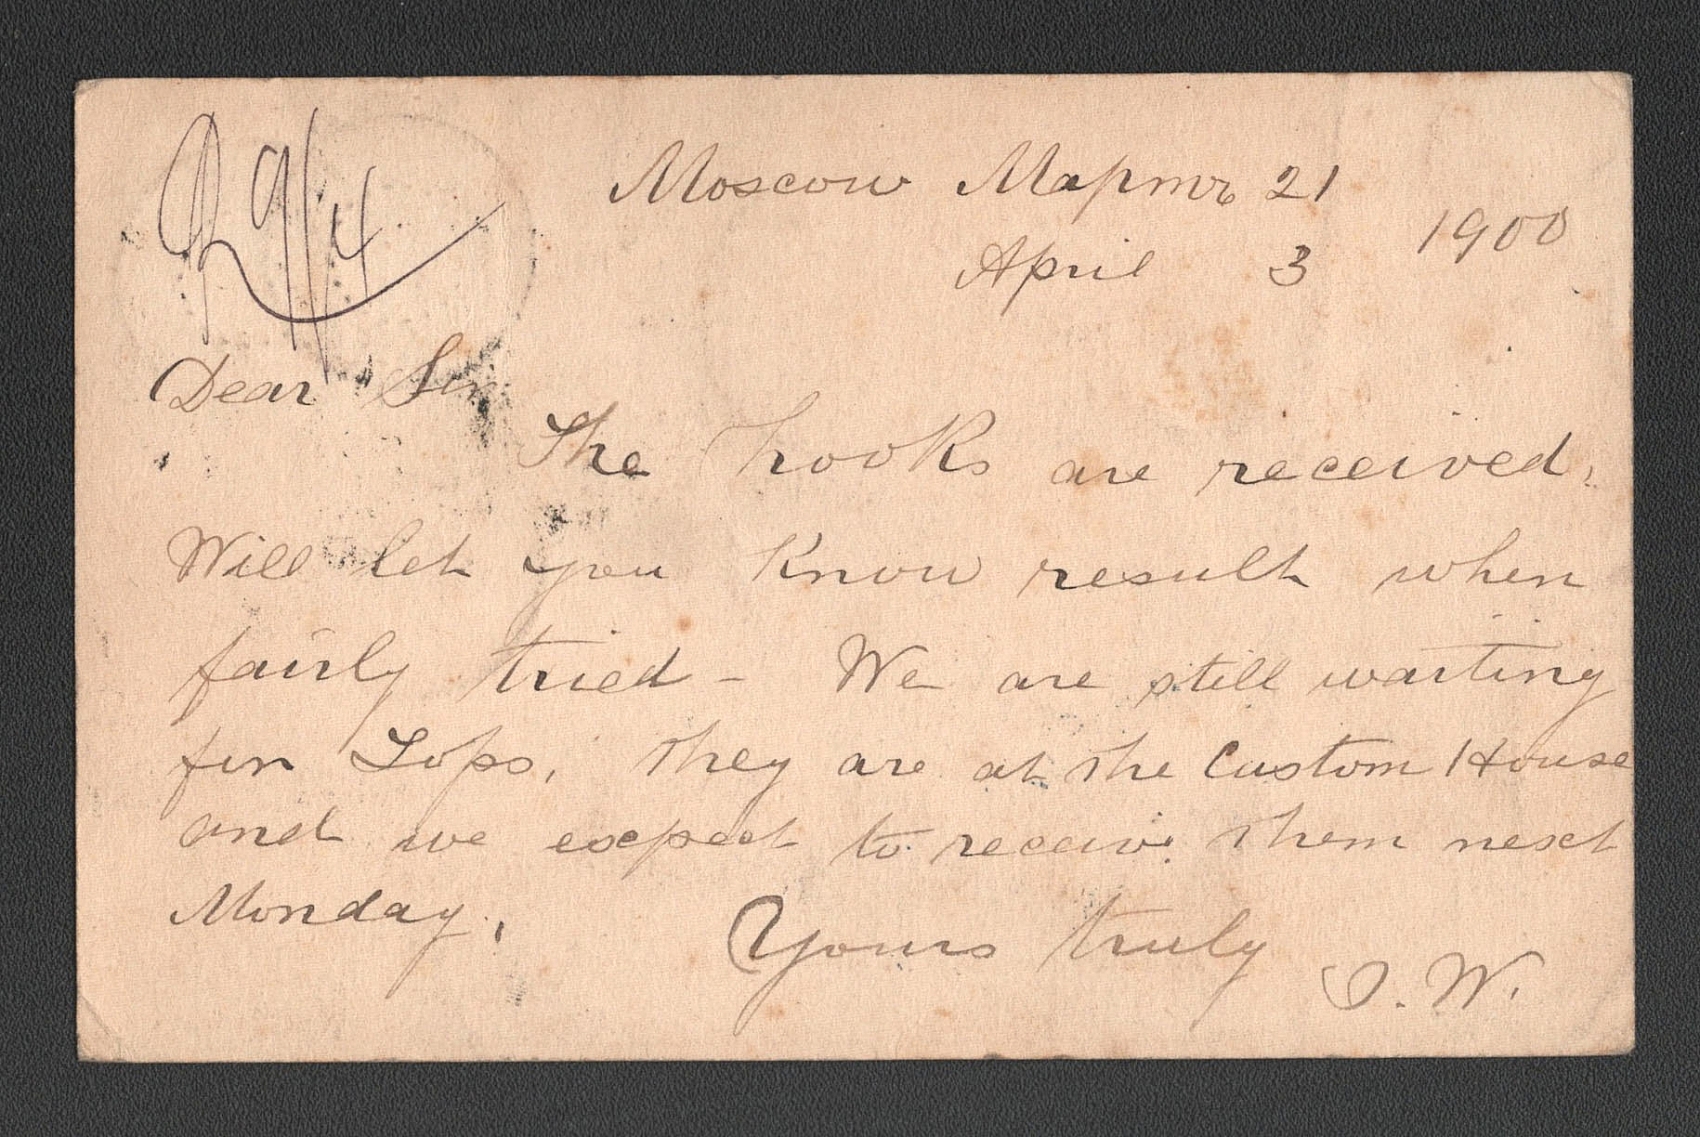 R 9/4
Moscow Мартъ 21
1900
April 3
Dear Sir
The hooks are received,
Will let you know result when
fairly tried - We are still waiting
for Tops, They are at the Custom House
and we expect to receive them next
Monday,
Yours truly
O. W.